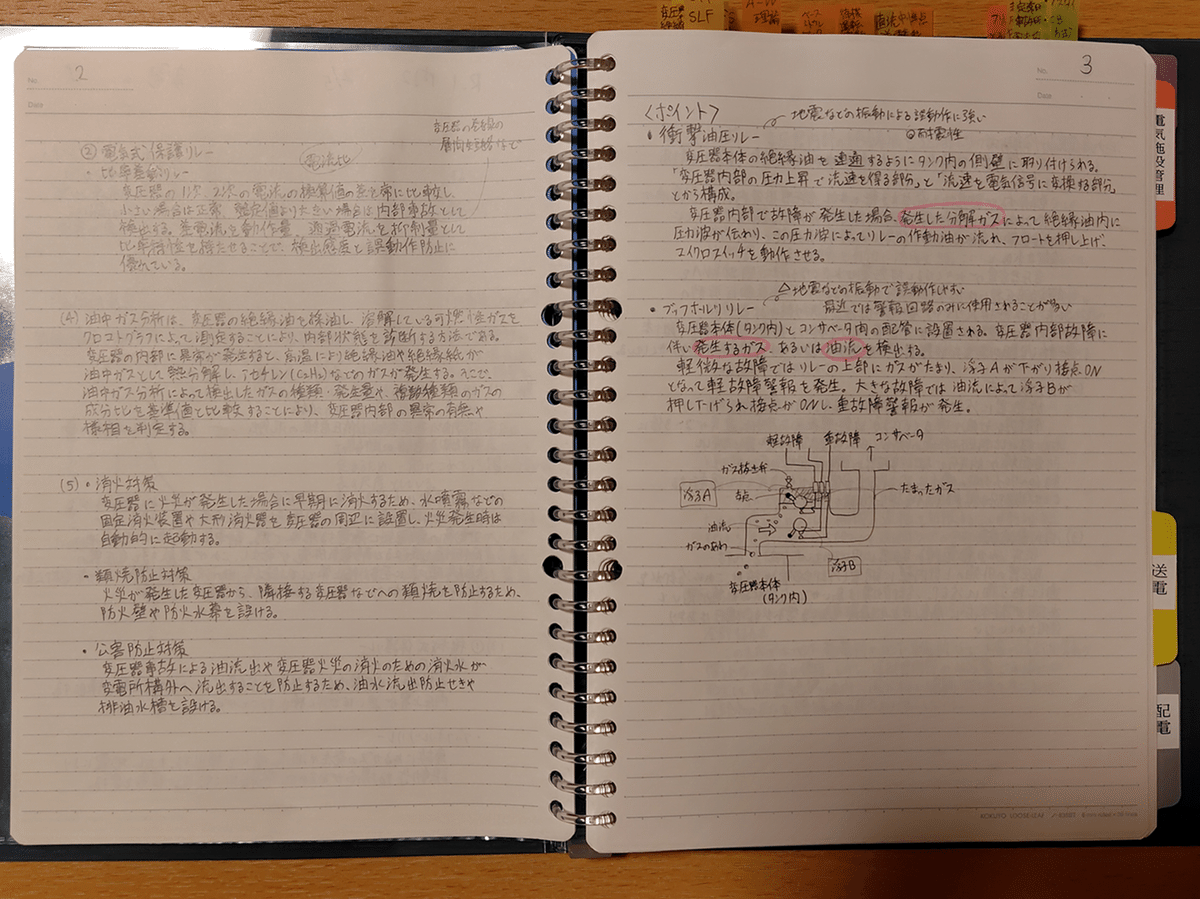 SLF
理論
直流中性点
No. 2
Date
変圧器の巻線の
層間短絡など
② 電気式保護リレー
電流比
・比率差動リレー
変圧器の1次、2次の電流の換算値の差を常に比較し、
小さい場合は正常、整定値より大きい場合は内部事故として
検出する。差電流を動作量、通過電流を抑制量として
比率特性を持たせることで、検出感度と誤動作防止に
優れている。
(4) 油中ガス分析は、変圧器の絶縁油を採油し、溶解している可燃性ガスを
クロマトグラフによって測定することにより、内部状態を診断する方法である。
変圧器の内部に異常が発生すると、高温により絶縁油や絶縁紙が
油中ガスとして熱分解し、アセチレン(C₂H₂)などのガスが発生する。そこで、
油中ガス分析によって検出したガスの種類・発生量や、複数種類のガスの
成分比を基準値と比較することにより、変圧器内部の異常の有無や
様相を判定する。
(5)・消火対策
変圧器に火災が発生した場合に早期に消火するため、水噴霧などの
固定消火装置や大形消火器を変圧器の周辺に設置し、火災発生時は
自動的に起動する。
・類焼防止対策
火災が発生した変圧器から、隣接する変圧器などへの類焼を防止するため、
防火壁や防火水幕を設ける。
・公害防止対策
変圧器事故による油流出や変圧器火災の消火のための消火水が
変電所構外へ流出することを防止するため、油水流出防止せきや
排油水槽を設ける。
No. 3
Date
〈ポイント〉
地震などの振動による誤動作に強い
・衝撃油圧リレー
◎耐震性
変圧器本体の絶縁油を連通するようにタンク内の側壁に取り付けられる。
「変圧器内部の圧力上昇で流速を得る部分」と「流速を電気信号に変換する部分」
とから構成。
変圧器内部で故障が発生した場合、発生した分解ガスによって絶縁油内に
圧力波が伝わり、この圧力波によってリレーの作動油が流れ、フロートを押し上げ、
マイクロスイッチを動作させる。
△地震などの振動で誤動作しやすい
・ブッフホルツリレー
最近では警報回路のみに使用されることが多い
変圧器本体(タンク内)とコンサベータ間の配管に設置される。変圧器内部故障に
伴い発生するガス、あるいは油流を検出する。
軽微な故障ではリレーの上部にガスがたまり、浮子Aが下がり接点ON
となって軽故障警報を発生。大きな故障では油流によって浮子Bが
押し下げられ接点がONし、重故障警報が発生。
軽故障 重故障 コンサベータ
ガス抜き弁
浮子A
たまったガス
油流
ガスのあわ
浮子B
変圧器本体
(タンク内)
電気施設管理
送電
配電
KOKUYO LOOSE-LEAF